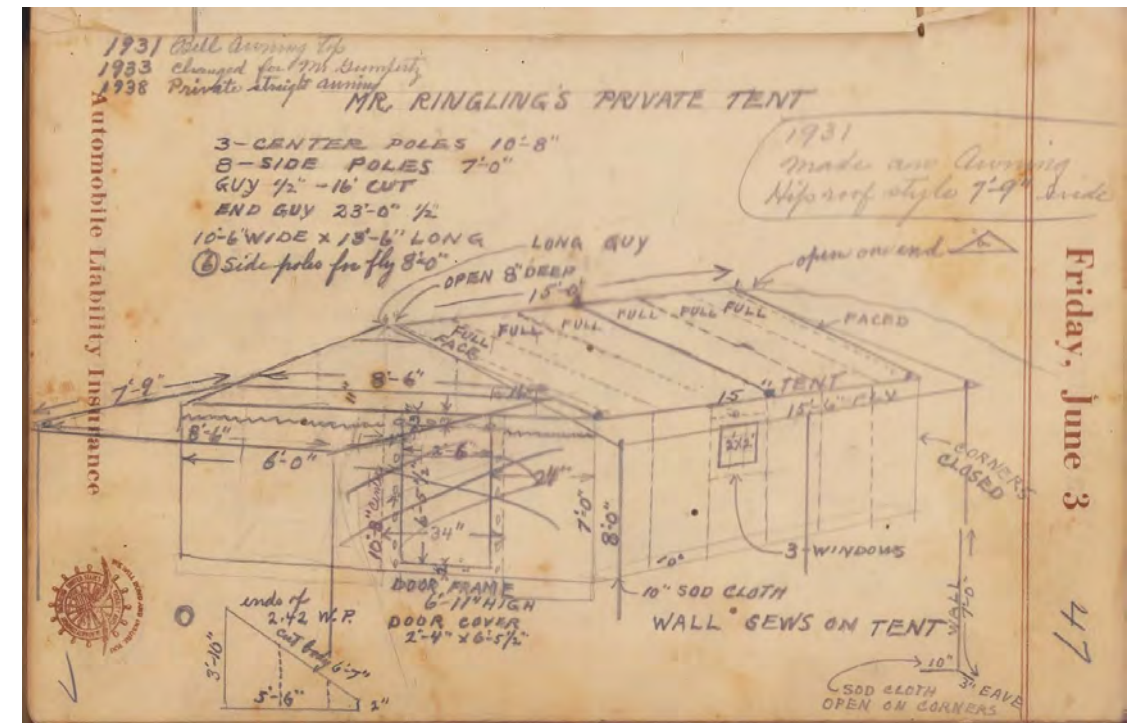 1931 Bell Awning Top
1933 Changed for Mr Gumpertz
1938 Private straight awning
MR. RINGLING'S PRIVATE TENT
3-CENTER POLES 10'-8"
8-SIDE POLES 7'-0"
GUY 1/2" - 16' CUT
END GUY 23'-0" 1/2
10'-6" WIDE X 13'-6" LONG
⑥ Side poles for fly 8'-0"
1931
made an Awning
Hip roof style 7'-9" wide
LONG GUY
open on end
OPEN 8" DEEP
15'-0"
FULL
FACE
FULL
FULL
FULL
FULL
FULL
FACED
7'-9"
8'-6"
11"
TENT
15'-6" FLY
15"
2'X2'
8'-6"
6'-0"
2'-6"
24"
6'-5 1/2"
10'-8" Center
34"
7'-0"
8'-0"
CORNERS
CLOSED
3-WINDOWS
10" SOD CLOTH
DOOR FRAME
6'-11" HIGH
DOOR COVER
2'-4" X 6'-5 1/2"
WALL SEWS ON TENT
WALL 7'-0"
10"
3" EAVE
SOD CLOTH
OPEN ON CORNERS
ends of
2.42 W.P.
cut body 6'-7"
3'-10"
5'-6"
2"
Automobile Liability Insurance
Friday, June 3
47